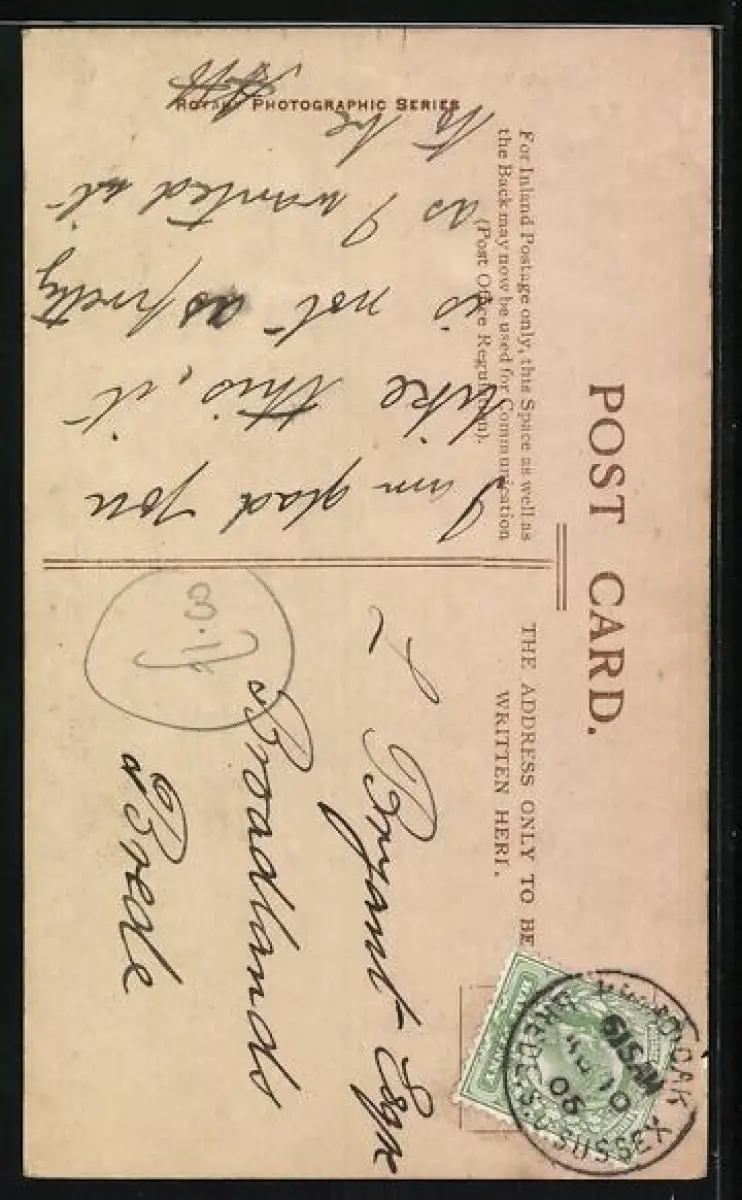 POST CARD.
For Inland Postage only, this Space as well as
the Back may now be used for Communication
(Post Office Regulation).
THE ADDRESS ONLY TO BE
WRITTEN HERE.
ROTARY PHOTOGRAPHIC SERIES
I am glad you
like this, it
is not as pretty
as I wanted it
to be
L Bryant Esqre
Broadlands
Brede
BREDE S.O. SUSSEX